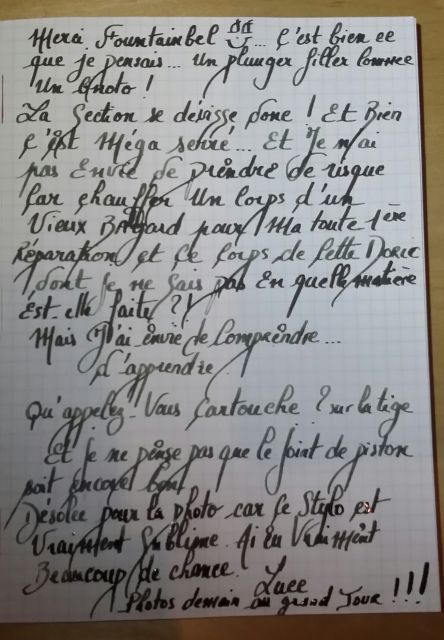 Merci Fountainbel ... C'est bien ce
que je pensais... Un plunger filler comme
un Onoto !
La Section se dévisse donc ! Et Bien
C'est Méga serré... Et Je n'ai
pas Envie de prendre de risque
Car chauffer Un Corps d'un
Vieux Bayard pour Ma toute 1ère
Réparation et Ce Corps de Cette Doric
dont je ne sais pas En quelle matière
Est elle faite ?!
Mais J'ai envie de Comprendre...
d'apprendre.
Qu'appelez-Vous Cartouche ? sur la tige
Et je ne pense pas que le joint de piston
soit encore bon
Désolée pour la photo car Ce Stylo est
Vraiment Sublime. Ai Eu Vraiment
Beaucoup de chance.
Photos demain au grand Jour !!!